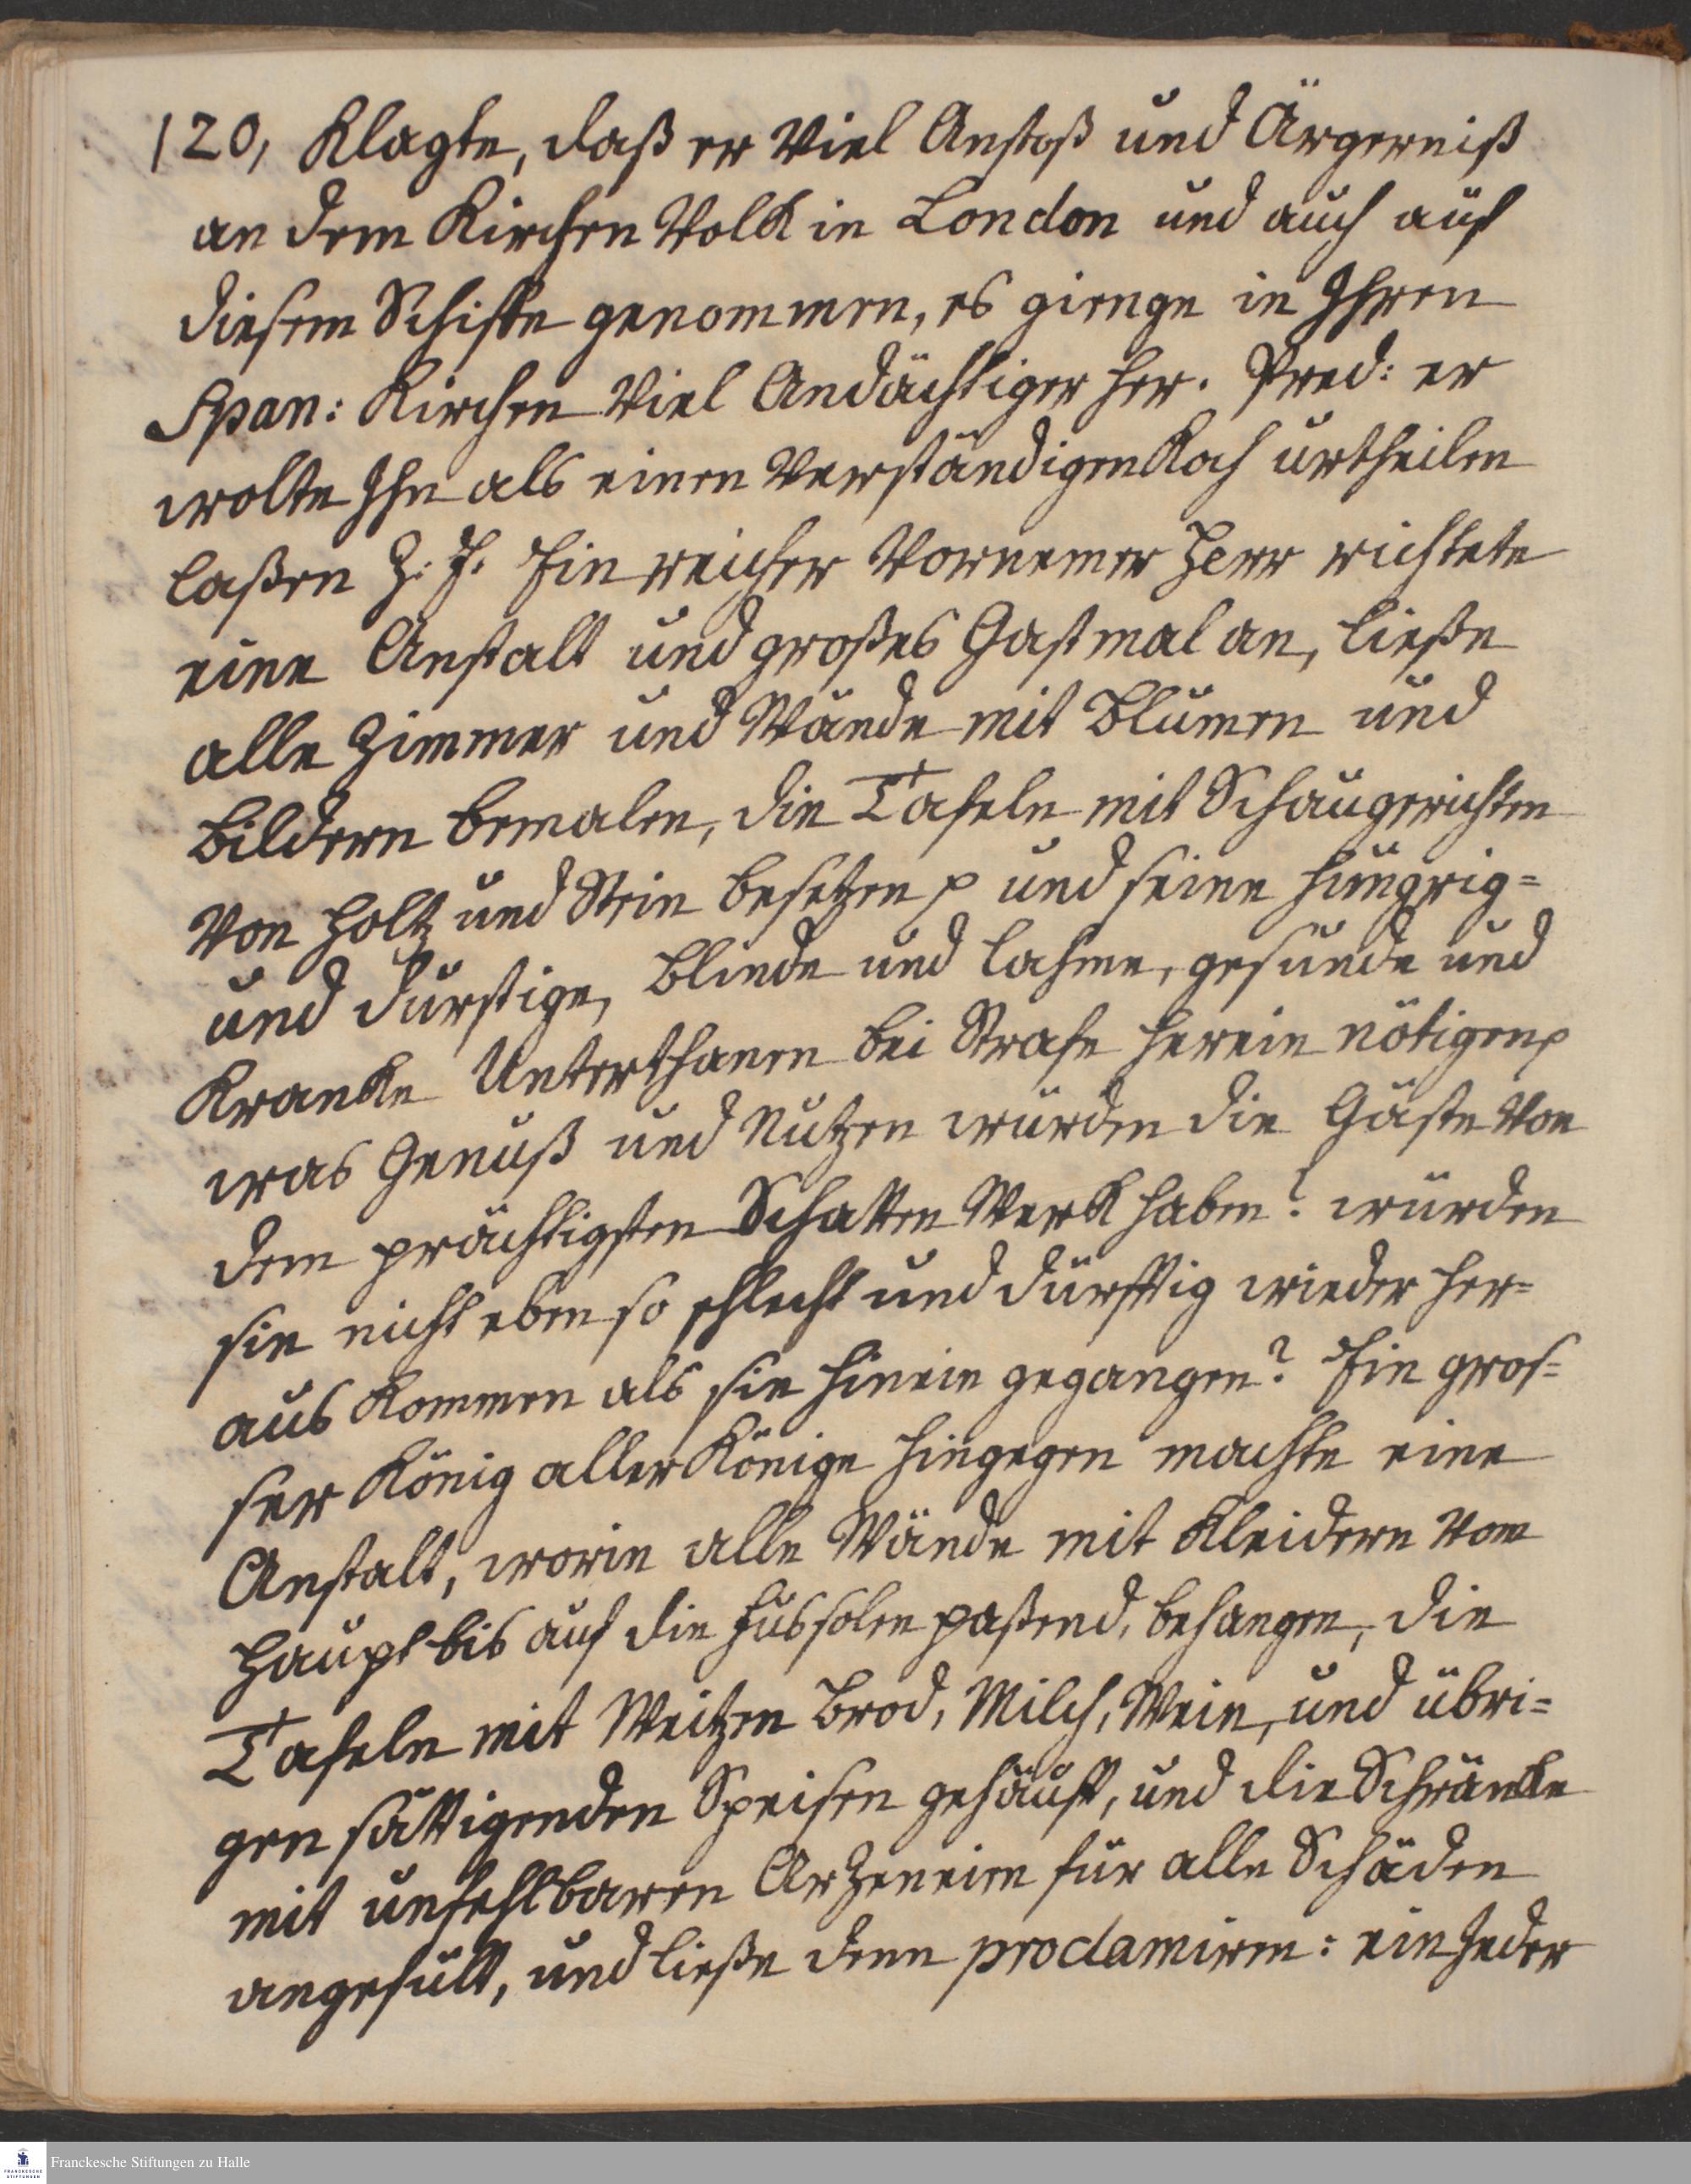 120, Klagte, daß er Viel Anstoß und Ärgerniß
an dem Kirchen Volk in London und auch auf
diesem Schiffe genommen, es gienge in Ihren
Span: Kirchen Viel Andächtiger her. Pred: er
wolte Ihn als einen Verständigen Koch urtheilen
laßen Z. E. Ein reicher Vornemer Herr richtete
eine Anstalt und großes Gastmal an, ließe
alle Zimmer und Wände mit Blumen und
Bildern bemalen, die Tafeln mit Schaugerichten
Von Holtz und Stein besetzen p und seine hungrig=
und durstige, Blinde und lahme, gesunde und
Kranke Unterthanen bei Strafe herein nötigen p
was Genuß und Nutzen würden die Gäste Von
dem prächtigsten Schatten Werk haben? würden
sie nicht eben so schlecht und dürfftig wieder her=
aus Kommen als sie hinein gegangen? Ein gros=
ser König aller Könige hingegen machte eine
Anstalt, worin alle Wände mit Kleidern Vom
Haupt bis auf die Fussolen paßend, behangen, die
Tafeln mit Weitzen Brod, Milch, Wein, und übri=
gen sättigenden Speisen gehäuft, und die Schränke
mit unfehlbaren Arzeneien für alle Schäden
angefült, und ließe denn proclamiren: ein Jeder
Franckesche Stiftungen zu Halle
FRANCKESCHE
STIFTUNGEN